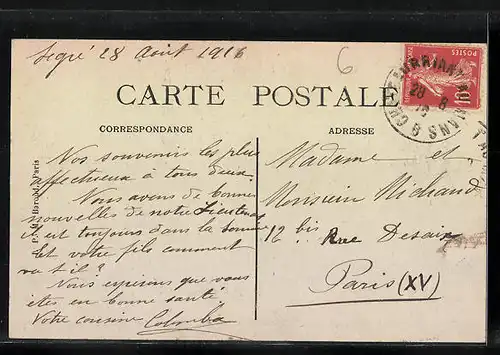 Segré 28 Août 1916
6
CARTE POSTALE
CORRESPONDANCE
ADRESSE
Nos souvenirs les plus
affectueux à tous deux
Nous avons de bonnes
nouvelles de notre Lieutenant
il est toujours dans la Somme
Et votre fils comment
va t'il ?
Nous espérons que vous
êtes en bonne santé
Votre cousine Colomba
Madame et
Monsieur Michaud
12 bis Rue Desaix
Paris (XV)
POSTES
10
28 8